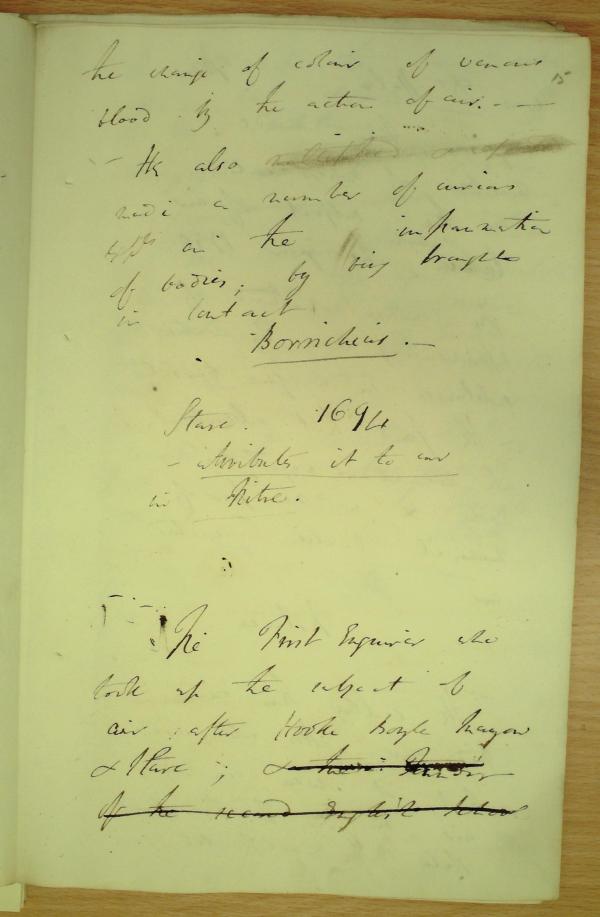 15
the change of colour of venous
blood by the action of air. - —
- He also
made a number of curious
on the inflammation
of bodies; by being brought
in contact
Borrichius. —
Slare. 1694
- attributes it to air
in Nitre.
The First Enquirer who
took up the subject of
air after Hooke Boyle Mayow
& Slare ; &
of the second English